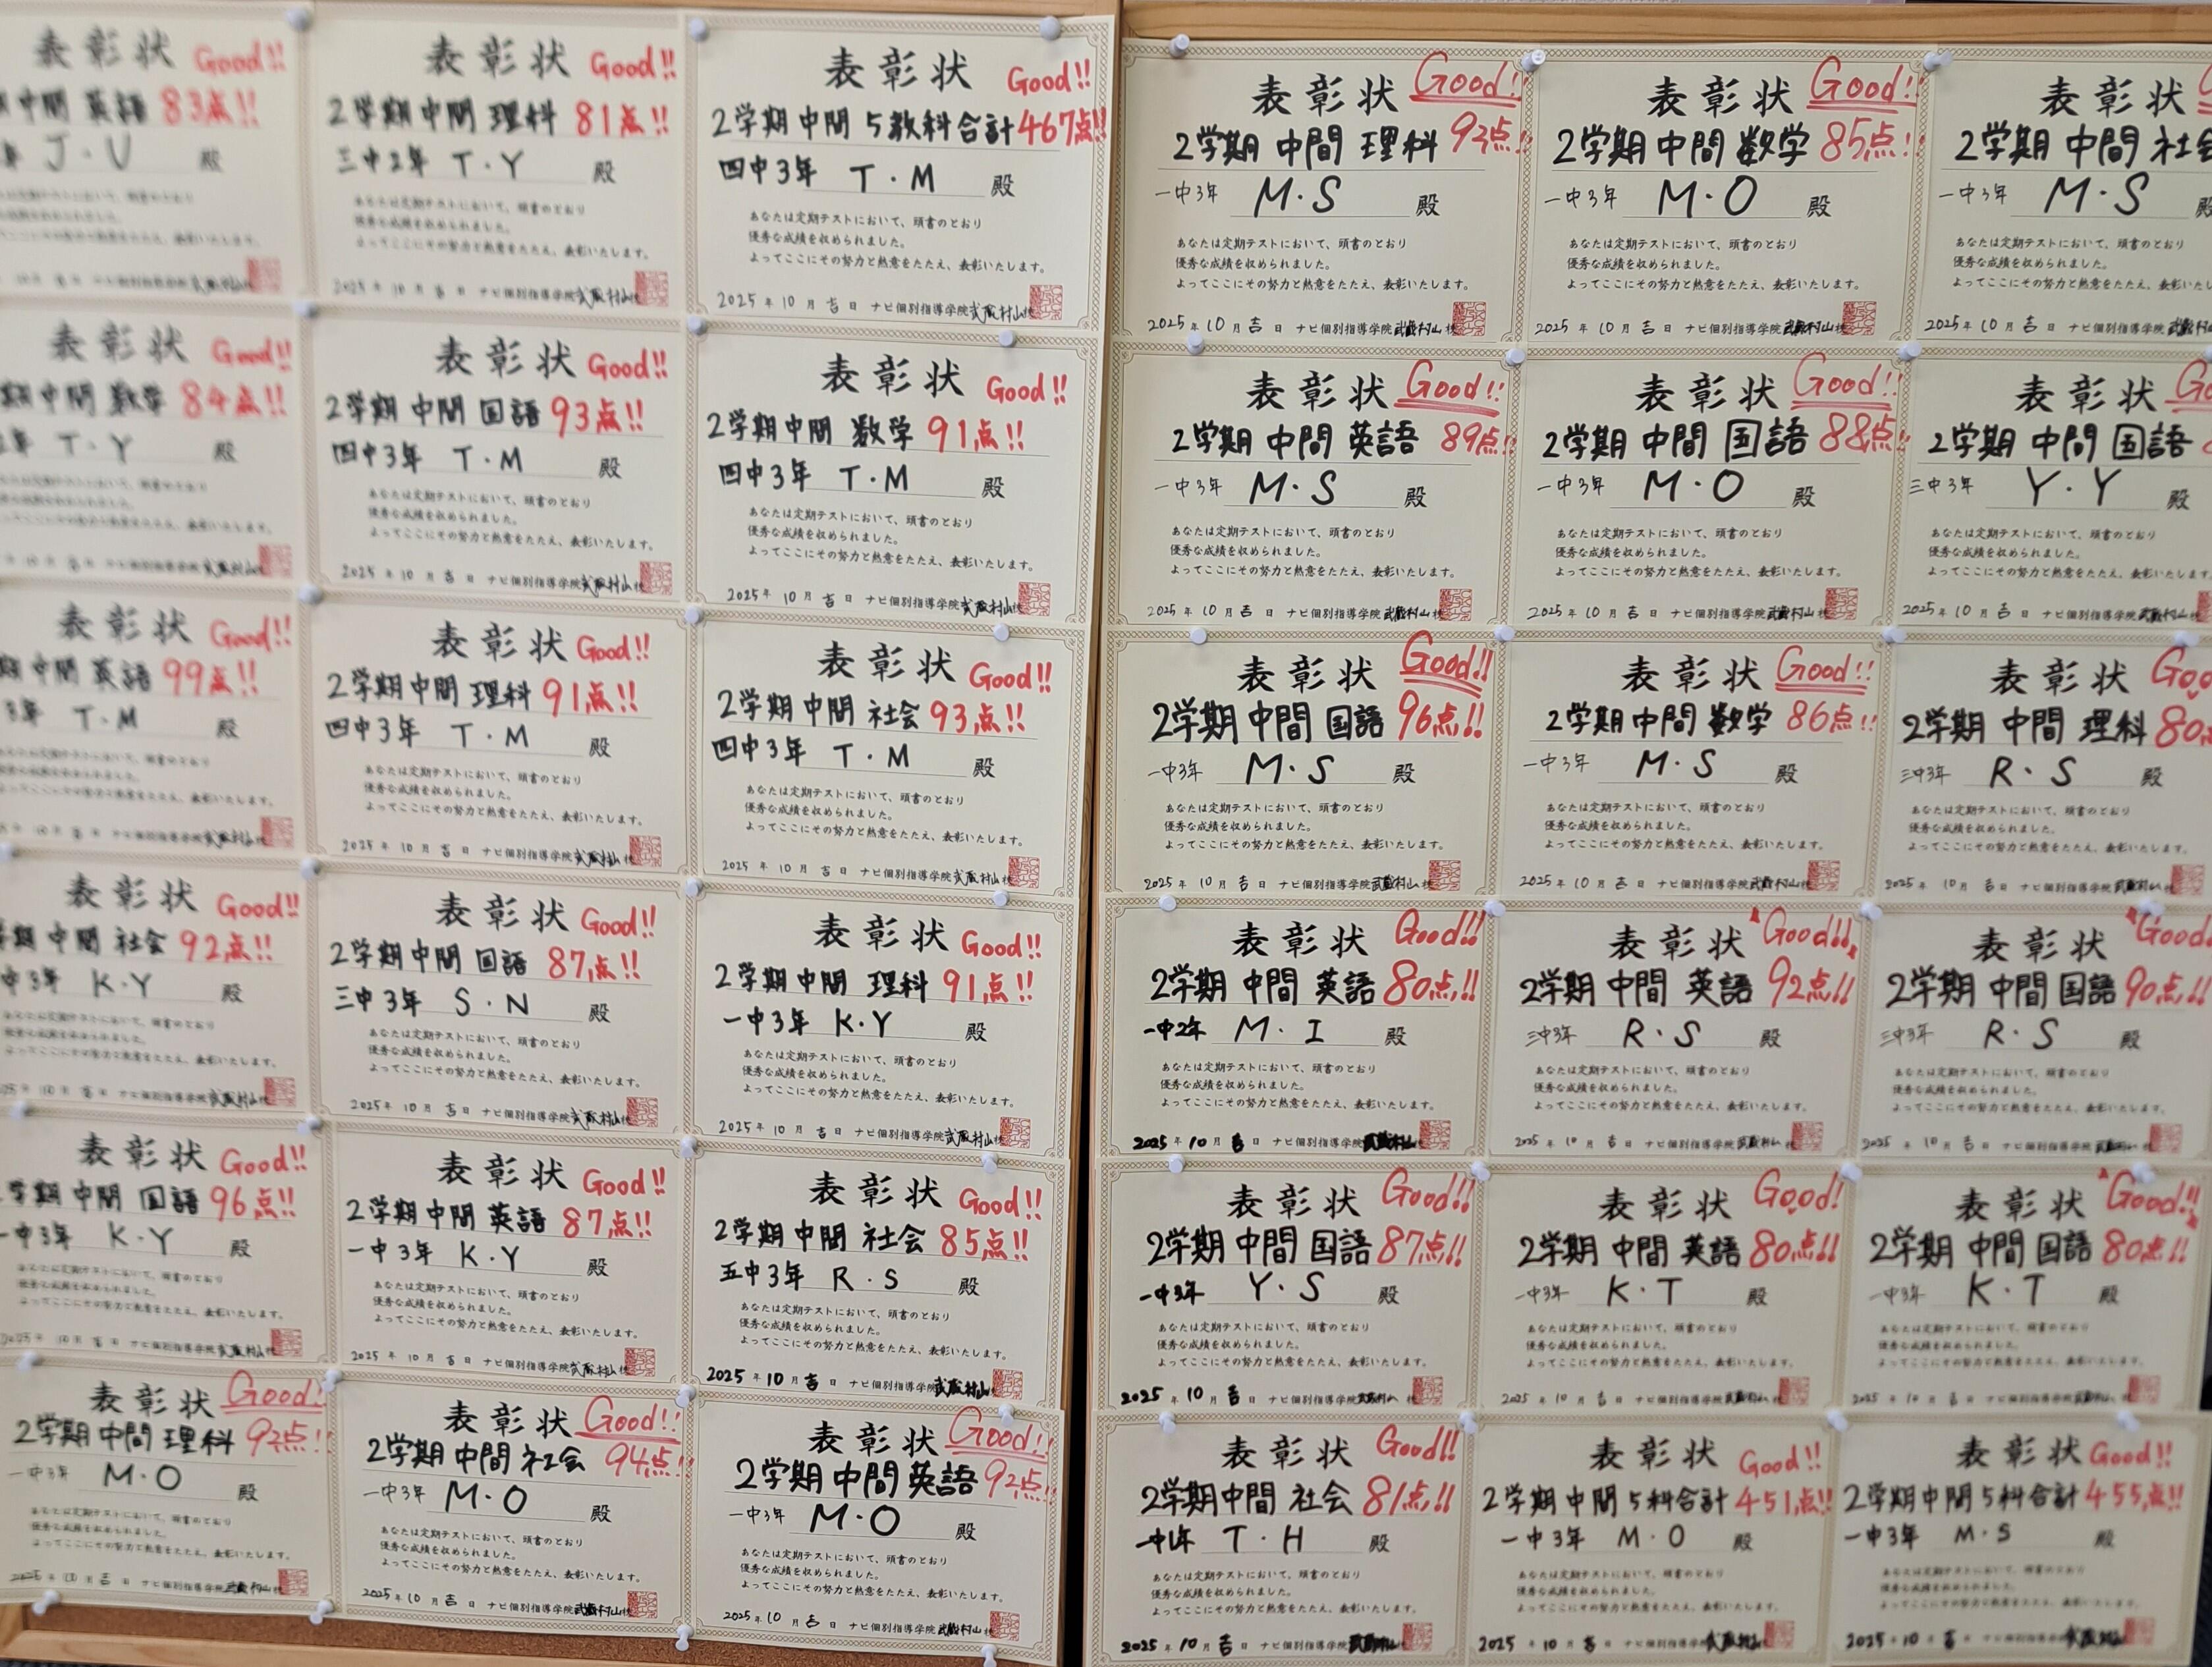 表彰状 Good!!
中間 英語 83点!!
年 J・U 殿
2学期 中間 理科 81点!!
三中2年 T・Y 殿
あなたは定期テストにおいて、頭書のとおり
優秀な成績を収められました。
よってここにその努力と熱意をたたえ、表彰いたします。
2025年10月吉日 ナビ個別指導学院武蔵村山校
表彰状 Good!!
2学期 中間 5教科合計467点!!
四中3年 T・M 殿
あなたは定期テストにおいて、頭書のとおり
優秀な成績を収められました。
よってここにその努力と熱意をたたえ、表彰いたします。
2025年10月吉日 ナビ個別指導学院武蔵村山校
表彰状 Good!!
2学期 中間 理科 92点!!
一中3年 M・S 殿
あなたは定期テストにおいて、頭書のとおり
優秀な成績を収められました。
よってここにその努力と熱意をたたえ、表彰いたします。
2025年10月吉日 ナビ個別指導学院武蔵村山
表彰状 Good!!
2学期 中間 数学 85点!!
一中3年 M・O 殿
あなたは定期テストにおいて、頭書のとおり
優秀な成績を収められました。
よってここにその努力と熱意をたたえ、表彰いたします。
2025年10月吉日 ナビ個別指導学院武蔵村山
表彰状
2学期 中間 社会
一中3年 M・S 殿
表彰状 Good!!
期 中間 数学 84点!!
年 T・Y 殿
表彰状 Good!!
2学期 中間 国語 93点!!
四中3年 T・M 殿
あなたは定期テストにおいて、頭書のとおり
優秀な成績を収められました。
よってここにその努力と熱意をたたえ、表彰いたします。
2025年10月吉日 ナビ個別指導学院武蔵村山校
表彰状 Good!!
2学期 中間 数学 91点!!
四中3年 T・M 殿
あなたは定期テストにおいて、頭書のとおり
優秀な成績を収められました。
よってここにその努力と熱意をたたえ、表彰いたします。
2025年10月吉日 ナビ個別指導学院武蔵村山校
表彰状 Good!!
2学期 中間 英語 89点!!
一中3年 M・S 殿
あなたは定期テストにおいて、頭書のとおり
優秀な成績を収められました。
よってここにその努力と熱意をたたえ、表彰いたします。
2025年10月吉日 ナビ個別指導学院武蔵村山校
表彰状 Good!!
2学期 中間 国語 88点!!
一中3年 M・O 殿
あなたは定期テストにおいて、頭書のとおり
優秀な成績を収められました。
よってここにその努力と熱意をたたえ、表彰いたします。
2025年10月吉日 ナビ個別指導学院武蔵村山
表彰状
2学期 中間 国語
三中3年 Y・Y 殿
あなたは定期テストにおいて、頭書のとおり
優秀な成績を収められました。
よってここにその努力と熱意をたたえ、表彰いたします。
2025年10月吉日 ナビ個別指導学院武蔵村山
表彰状 Good!!
期 中間 英語 99点!!
3年 T・M 殿
表彰状 Good!!
2学期 中間 理科 91点!!
四中3年 T・M 殿
あなたは定期テストにおいて、頭書のとおり
優秀な成績を収められました。
よってここにその努力と熱意をたたえ、表彰いたします。
2025年10月吉日 ナビ個別指導学院武蔵村山校
表彰状 Good!!
2学期 中間 社会 93点!!
四中3年 T・M 殿
あなたは定期テストにおいて、頭書のとおり
優秀な成績を収められました。
よってここにその努力と熱意をたたえ、表彰いたします。
2025年10月吉日 ナビ個別指導学院武蔵村山校
表彰状 Good!!
2学期 中間 国語 96点!!
一中3年 M・S 殿
あなたは定期テストにおいて、頭書のとおり
優秀な成績を収められました。
よってここにその努力と熱意をたたえ、表彰いたします。
2025年10月吉日 ナビ個別指導学院武蔵村山
表彰状 Good!!
2学期 中間 数学 86点!!
一中3年 M・S 殿
あなたは定期テストにおいて、頭書のとおり
優秀な成績を収められました。
よってここにその努力と熱意をたたえ、表彰いたします。
2025年10月吉日 ナビ個別指導学院武蔵村山
表彰状
2学期 中間 理科 80点
三中3年 R・S 殿
あなたは定期テストにおいて、頭書のとおり
優秀な成績を収められました。
よってここにその努力と熱意をたたえ、表彰いたします。
2025年10月吉日 ナビ個別指導学院武蔵村山
表彰状 Good!!
学期 中間 社会 92点!!
中3年 K・Y 殿
表彰状 Good!!
2学期 中間 国語 87点!!
三中3年 S・N 殿
あなたは定期テストにおいて、頭書のとおり
優秀な成績を収められました。
よってここにその努力と熱意をたたえ、表彰いたします。
2025年10月吉日 ナビ個別指導学院武蔵村山校
表彰状 Good!!
2学期 中間 理科 91点!!
一中3年 K・Y 殿
あなたは定期テストにおいて、頭書のとおり
優秀な成績を収められました。
よってここにその努力と熱意をたたえ、表彰いたします。
2025年10月吉日 ナビ個別指導学院武蔵村山校
表彰状 Good!!
2学期 中間 英語 80点!!
一中2年 M・I 殿
あなたは定期テストにおいて、頭書のとおり
優秀な成績を収められました。
よってここにその努力と熱意をたたえ、表彰いたします。
2025年10月吉日 ナビ個別指導学院武蔵村山
表彰状 Good!!
2学期 中間 英語 92点!!
三中3年 R・S 殿
あなたは定期テストにおいて、頭書のとおり
優秀な成績を収められました。
よってここにその努力と熱意をたたえ、表彰いたします。
2025年10月吉日 ナビ個別指導学院武蔵村山
表彰状 Good!!
2学期 中間 国語 90点!!
三中3年 R・S 殿
あなたは定期テストにおいて、頭書のとおり
優秀な成績を収められました。
よってここにその努力と熱意をたたえ、表彰いたします。
2025年10月吉日 ナビ個別指導学院武蔵村山
表彰状 Good!!
学期 中間 国語 96点!!
一中3年 K・Y 殿
表彰状 Good!!
2学期 中間 英語 87点!!
一中3年 K・Y 殿
あなたは定期テストにおいて、頭書のとおり
優秀な成績を収められました。
よってここにその努力と熱意をたたえ、表彰いたします。
2025年10月吉日 ナビ個別指導学院武蔵村山校
表彰状 Good!!
2学期 中間 社会 85点!!
五中3年 R・S 殿
あなたは定期テストにおいて、頭書のとおり
優秀な成績を収められました。
よってここにその努力と熱意をたたえ、表彰いたします。
2025年10月吉日 ナビ個別指導学院武蔵村山
表彰状 Good!!
2学期 中間 国語 87点!!
一中3年 Y・S 殿
あなたは定期テストにおいて、頭書のとおり
優秀な成績を収められました。
よってここにその努力と熱意をたたえ、表彰いたします。
2025年10月吉日 ナビ個別指導学院武蔵村山
表彰状 Good!
2学期 中間 英語 80点!!
一中3年 K・T 殿
あなたは定期テストにおいて、頭書のとおり
優秀な成績を収められました。
よってここにその努力と熱意をたたえ、表彰いたします。
2025年10月吉日 ナビ個別指導学院武蔵村山
表彰状 Good!!
2学期 中間 国語 80点!!
一中3年 K・T 殿
あなたは定期テストにおいて、頭書のとおり
優秀な成績を収められました。
よってここにその努力と熱意をたたえ、表彰いたします。
2025年10月吉日 ナビ個別指導学院武蔵村山
表彰状 Good!
2学期 中間 理科 92点!
一中3年 M・O 殿
表彰状 Good!!
2学期 中間 社会 94点!!
一中3年 M・O 殿
あなたは定期テストにおいて、頭書のとおり
優秀な成績を収められました。
よってここにその努力と熱意をたたえ、表彰いたします。
2025年10月吉日 ナビ個別指導学院武蔵村山校
表彰状 Good!!
2学期 中間 英語 92点!!
一中3年 M・O 殿
あなたは定期テストにおいて、頭書のとおり
優秀な成績を収められました。
よってここにその努力と熱意をたたえ、表彰いたします。
2025年10月吉日 ナビ個別指導学院武蔵村山校
表彰状 Good!!
2学期 中間 社会 81点!!
T・H 殿
あなたは定期テストにおいて、頭書のとおり
優秀な成績を収められました。
よってここにその努力と熱意をたたえ、表彰いたします。
2025年10月吉日 ナビ個別指導学院武蔵村山
表彰状 Good!!
2学期 中間 5科合計 451点!!
一中3年 M・O 殿
あなたは定期テストにおいて、頭書のとおり
優秀な成績を収められました。
よってここにその努力と熱意をたたえ、表彰いたします。
2025年10月吉日 ナビ個別指導学院武蔵村山
表彰状 Good!!
2学期 中間 5科合計 455点!!
一中3年 M・S 殿
あなたは定期テストにおいて、頭書のとおり
優秀な成績を収められました。
よってここにその努力と熱意をたたえ、表彰いたします。
2025年10月吉日 ナビ個別指導学院武蔵村山